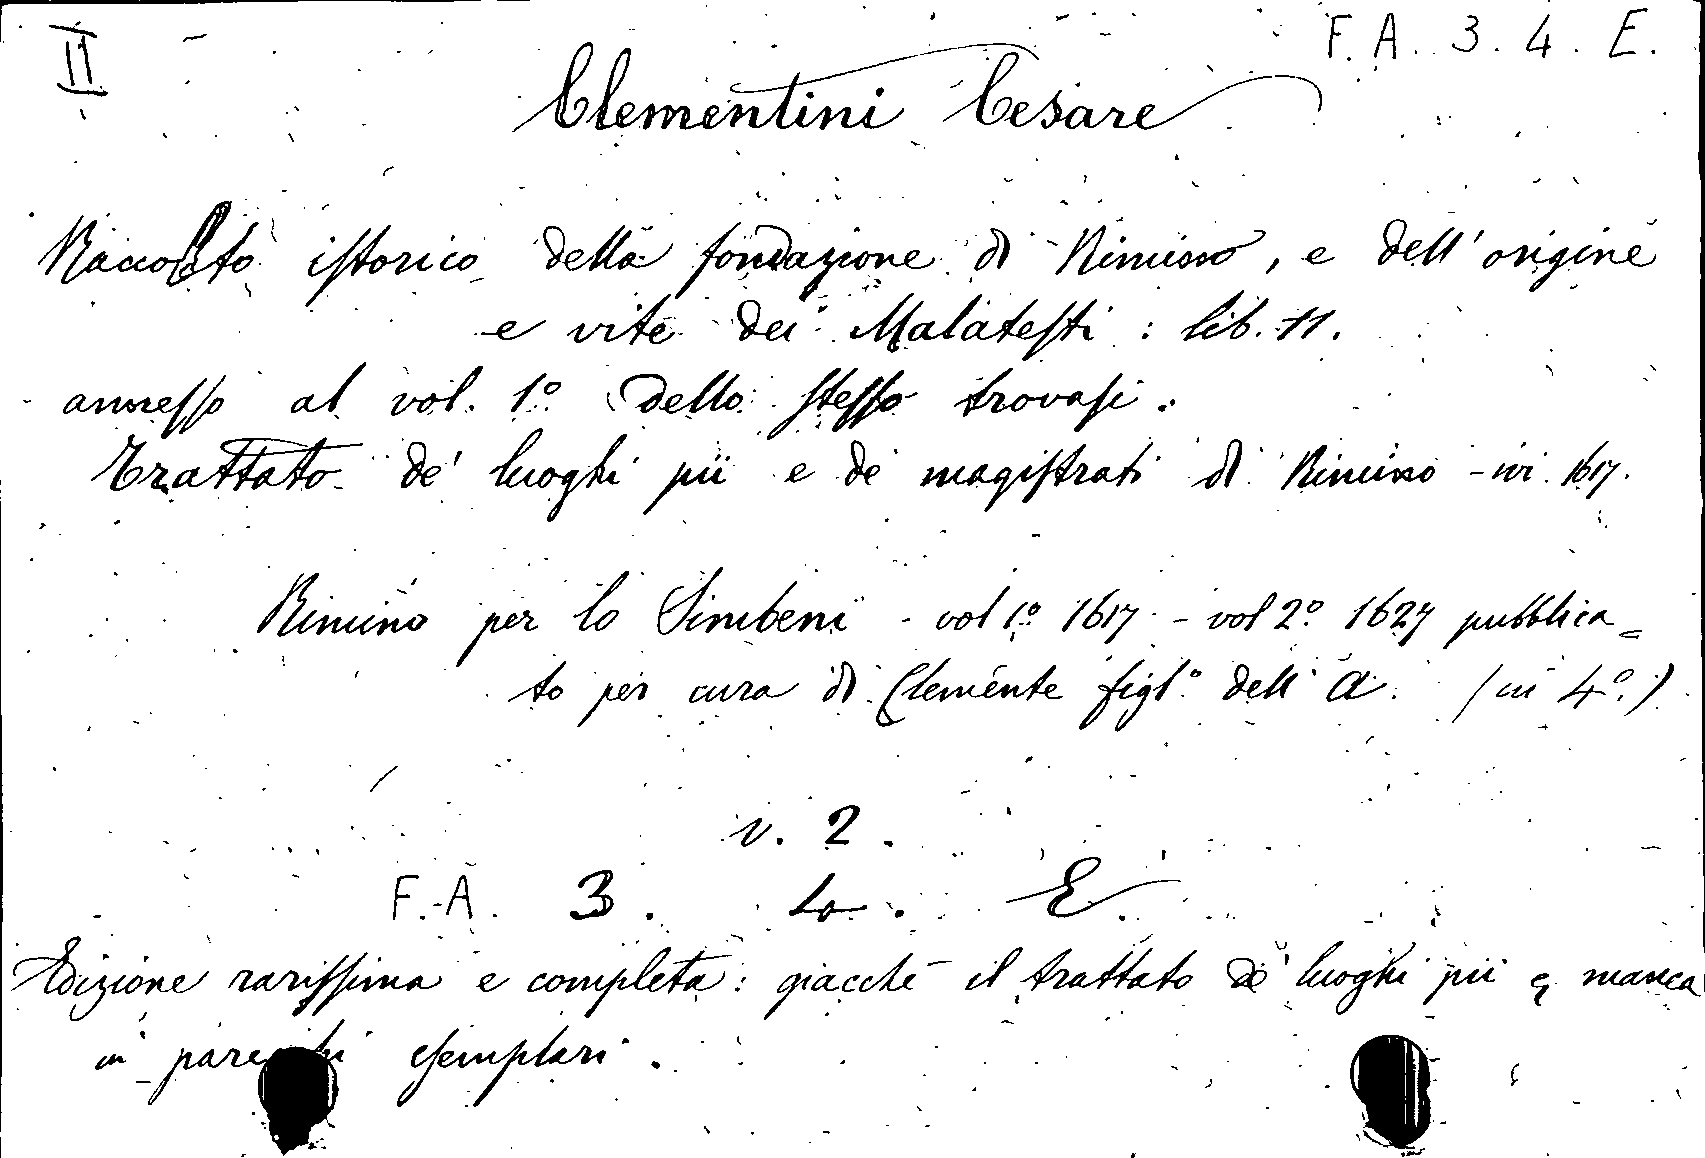 II
F. A. 3. 4. E.
Clementini Cesare
Raccolto istorico della fondazione di Rimino, e dell'origine
e vite dei Malatesti : lib. 11.
annesso al vol. 1º dello stesso trovasi.
Trattato de' luoghi pii e de' magistrati di Rimino - ivi 1617.
Rimino per lo Simbeni - vol 1º 1617 - vol 2º 1627 pubblica=
to per cura di Clemente figl.º dell' A. (in 4º.)
v. 2.
F. A. 3. 4. E.
Edizione rarissima e completa: giacchè il trattato de' luoghi pii manca
in parecchi esemplari.